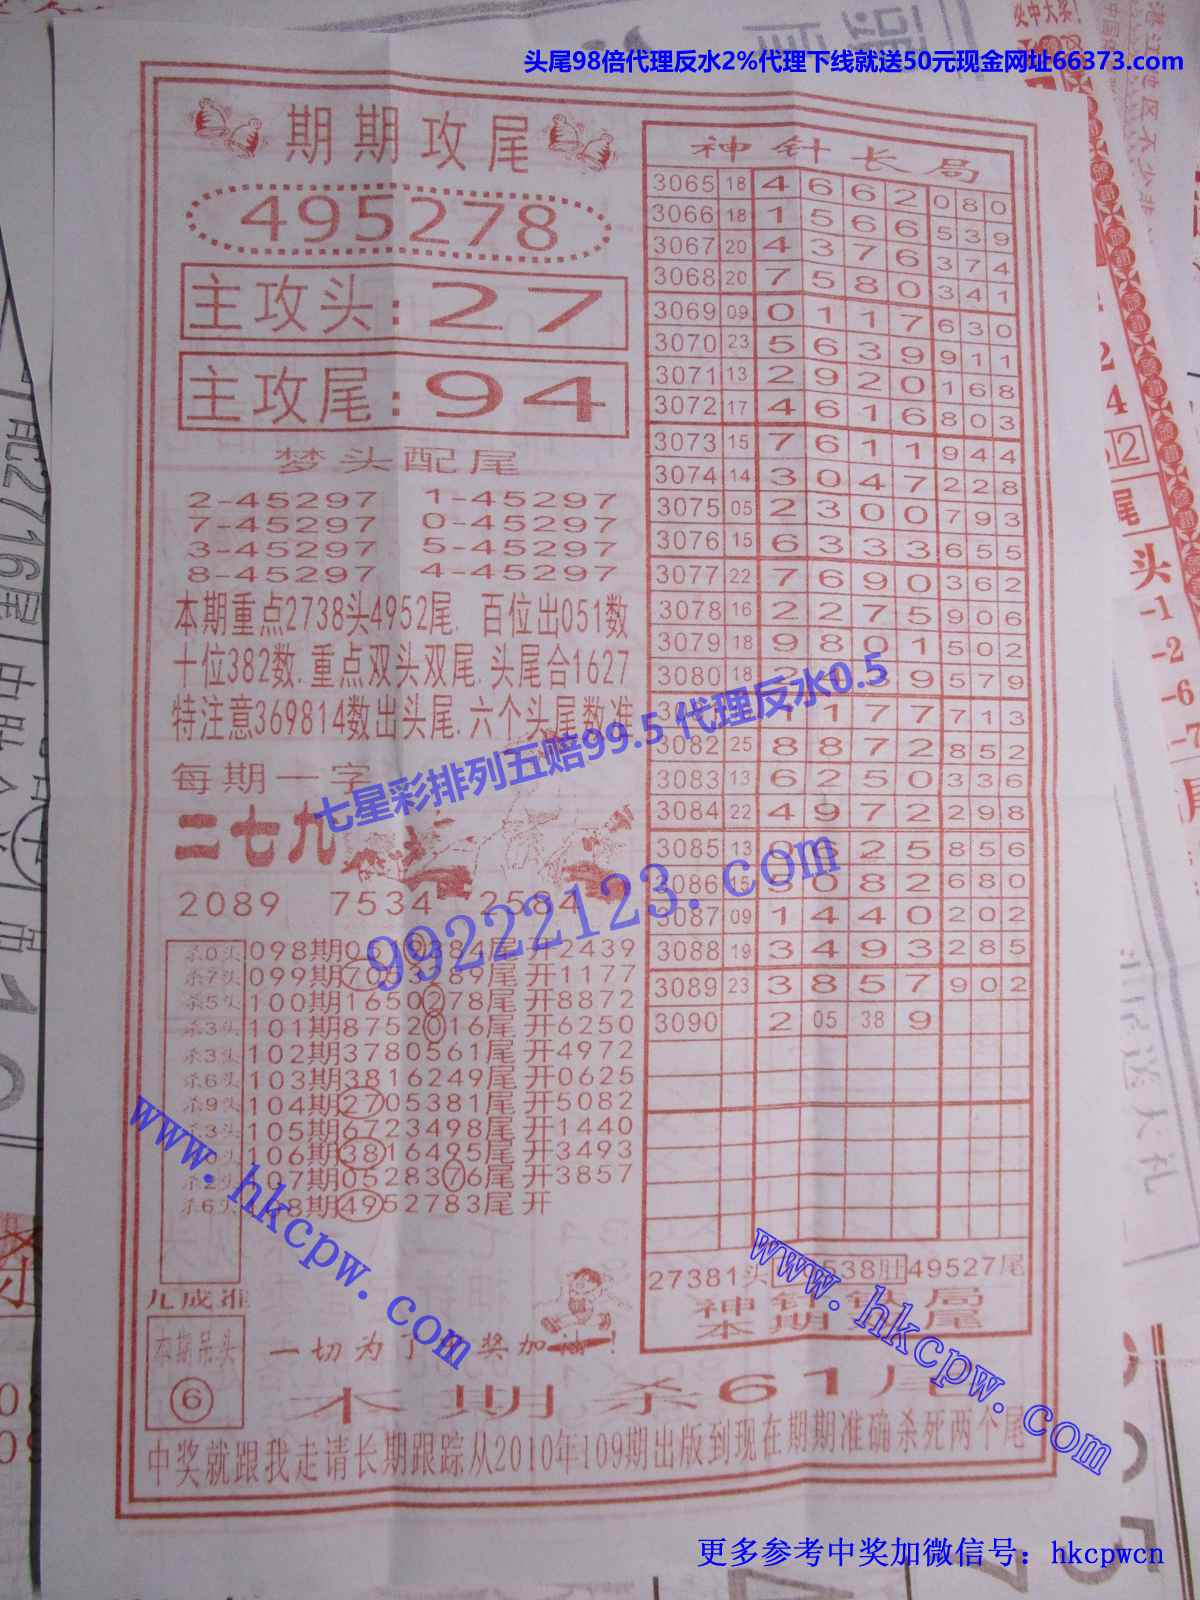 头尾98倍代理反水2%代理下线就送50元现金网址66373.com
期期攻尾
495278
主攻头:27
主攻尾:94
梦头配尾
2-45297 1-45297
7-45297 0-45297
3-45297 5-45297
8-45297 4-45297
本期重点2738头4952尾.百位出051数
十位382数.重点双头双尾.头尾合1627
特注意369814数出头尾.六个头尾数准
每期一字
二七九
2089 7534 2584
杀0头 098期05 9384尾开2439
杀7头 099期705 89尾开1177
杀5头 100期1650278尾开8872
杀3头 101期8752016尾开6250
杀3头 102期3780561尾开4972
杀6头 103期3816249尾开0625
杀9头 104期2705381尾开5082
杀3头 105期6723498尾开1440
106期3816495尾开3493
杀2头 107期0528376尾开3857
杀6头 8期4952783尾开
九成准
本期吊头
6
一切为了 奖加油!
神针长局
3065 18 4 6 6 2 0 8 0
3066 18 1 5 6 6 5 3 9
3067 20 4 3 7 6 3 7 4
3068 20 7 5 8 0 3 4 1
3069 09 0 1 1 7 6 3 0
3070 23 5 6 3 9 9 1 1
3071 13 2 9 2 0 1 6 8
3072 17 4 6 1 6 8 0 3
3073 15 7 6 1 1 9 4 4
3074 14 3 0 4 7 2 2 8
3075 05 2 3 0 0 7 9 3
3076 15 6 3 3 3 6 5 5
3077 22 7 6 9 0 3 6 2
3078 16 2 2 7 5 9 0 6
3079 18 9 8 0 1 5 0 2
3080 18 2 4 3 9 5 7 9
1 1 7 7 7 1 3
3082 25 8 8 7 2 8 5 2
3083 13 6 2 5 0 3 3 6
3084 22 4 9 7 2 2 9 8
3085 13 0 6 2 5 8 5 6
3086 15 5 0 8 2 6 8 0
3087 09 1 4 4 0 2 0 2
3088 19 3 4 9 3 2 8 5
3089 23 3 8 5 7 9 0 2
3090 2 05 38 9
27381头 538肚49527尾
神针 局
本期 尾
本期杀61尾
中奖就跟我走请长期跟踪从2010年109期出版到现在期期准确杀死两个尾
七星彩排列五赔99.5 代理反水0.5
99222123.com
www.hkcpw.com
www.hkcpw.com
更多参考中奖加微信号：hkcpwcn